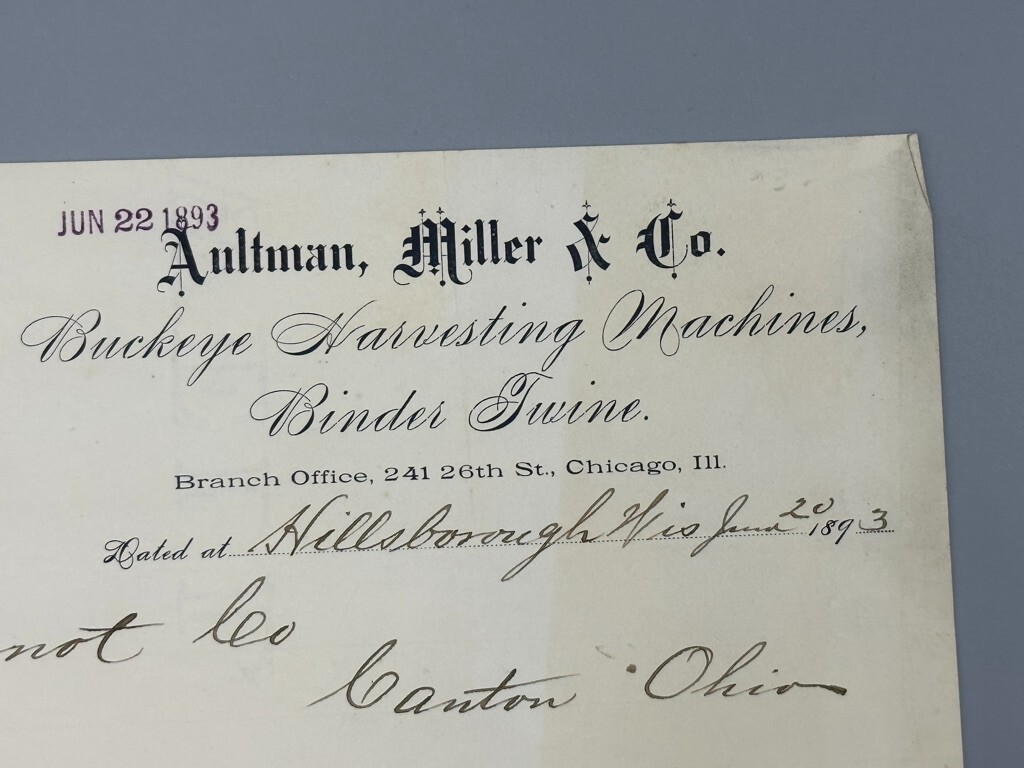 JUN 22 1893
Aultman, Miller & Co.
Buckeye Harvesting Machines,
Binder Twine.
Branch Office, 241 26th St., Chicago, Ill.
Dated at Hillsborough Wis June 20 1893
not Co
Canton Ohio